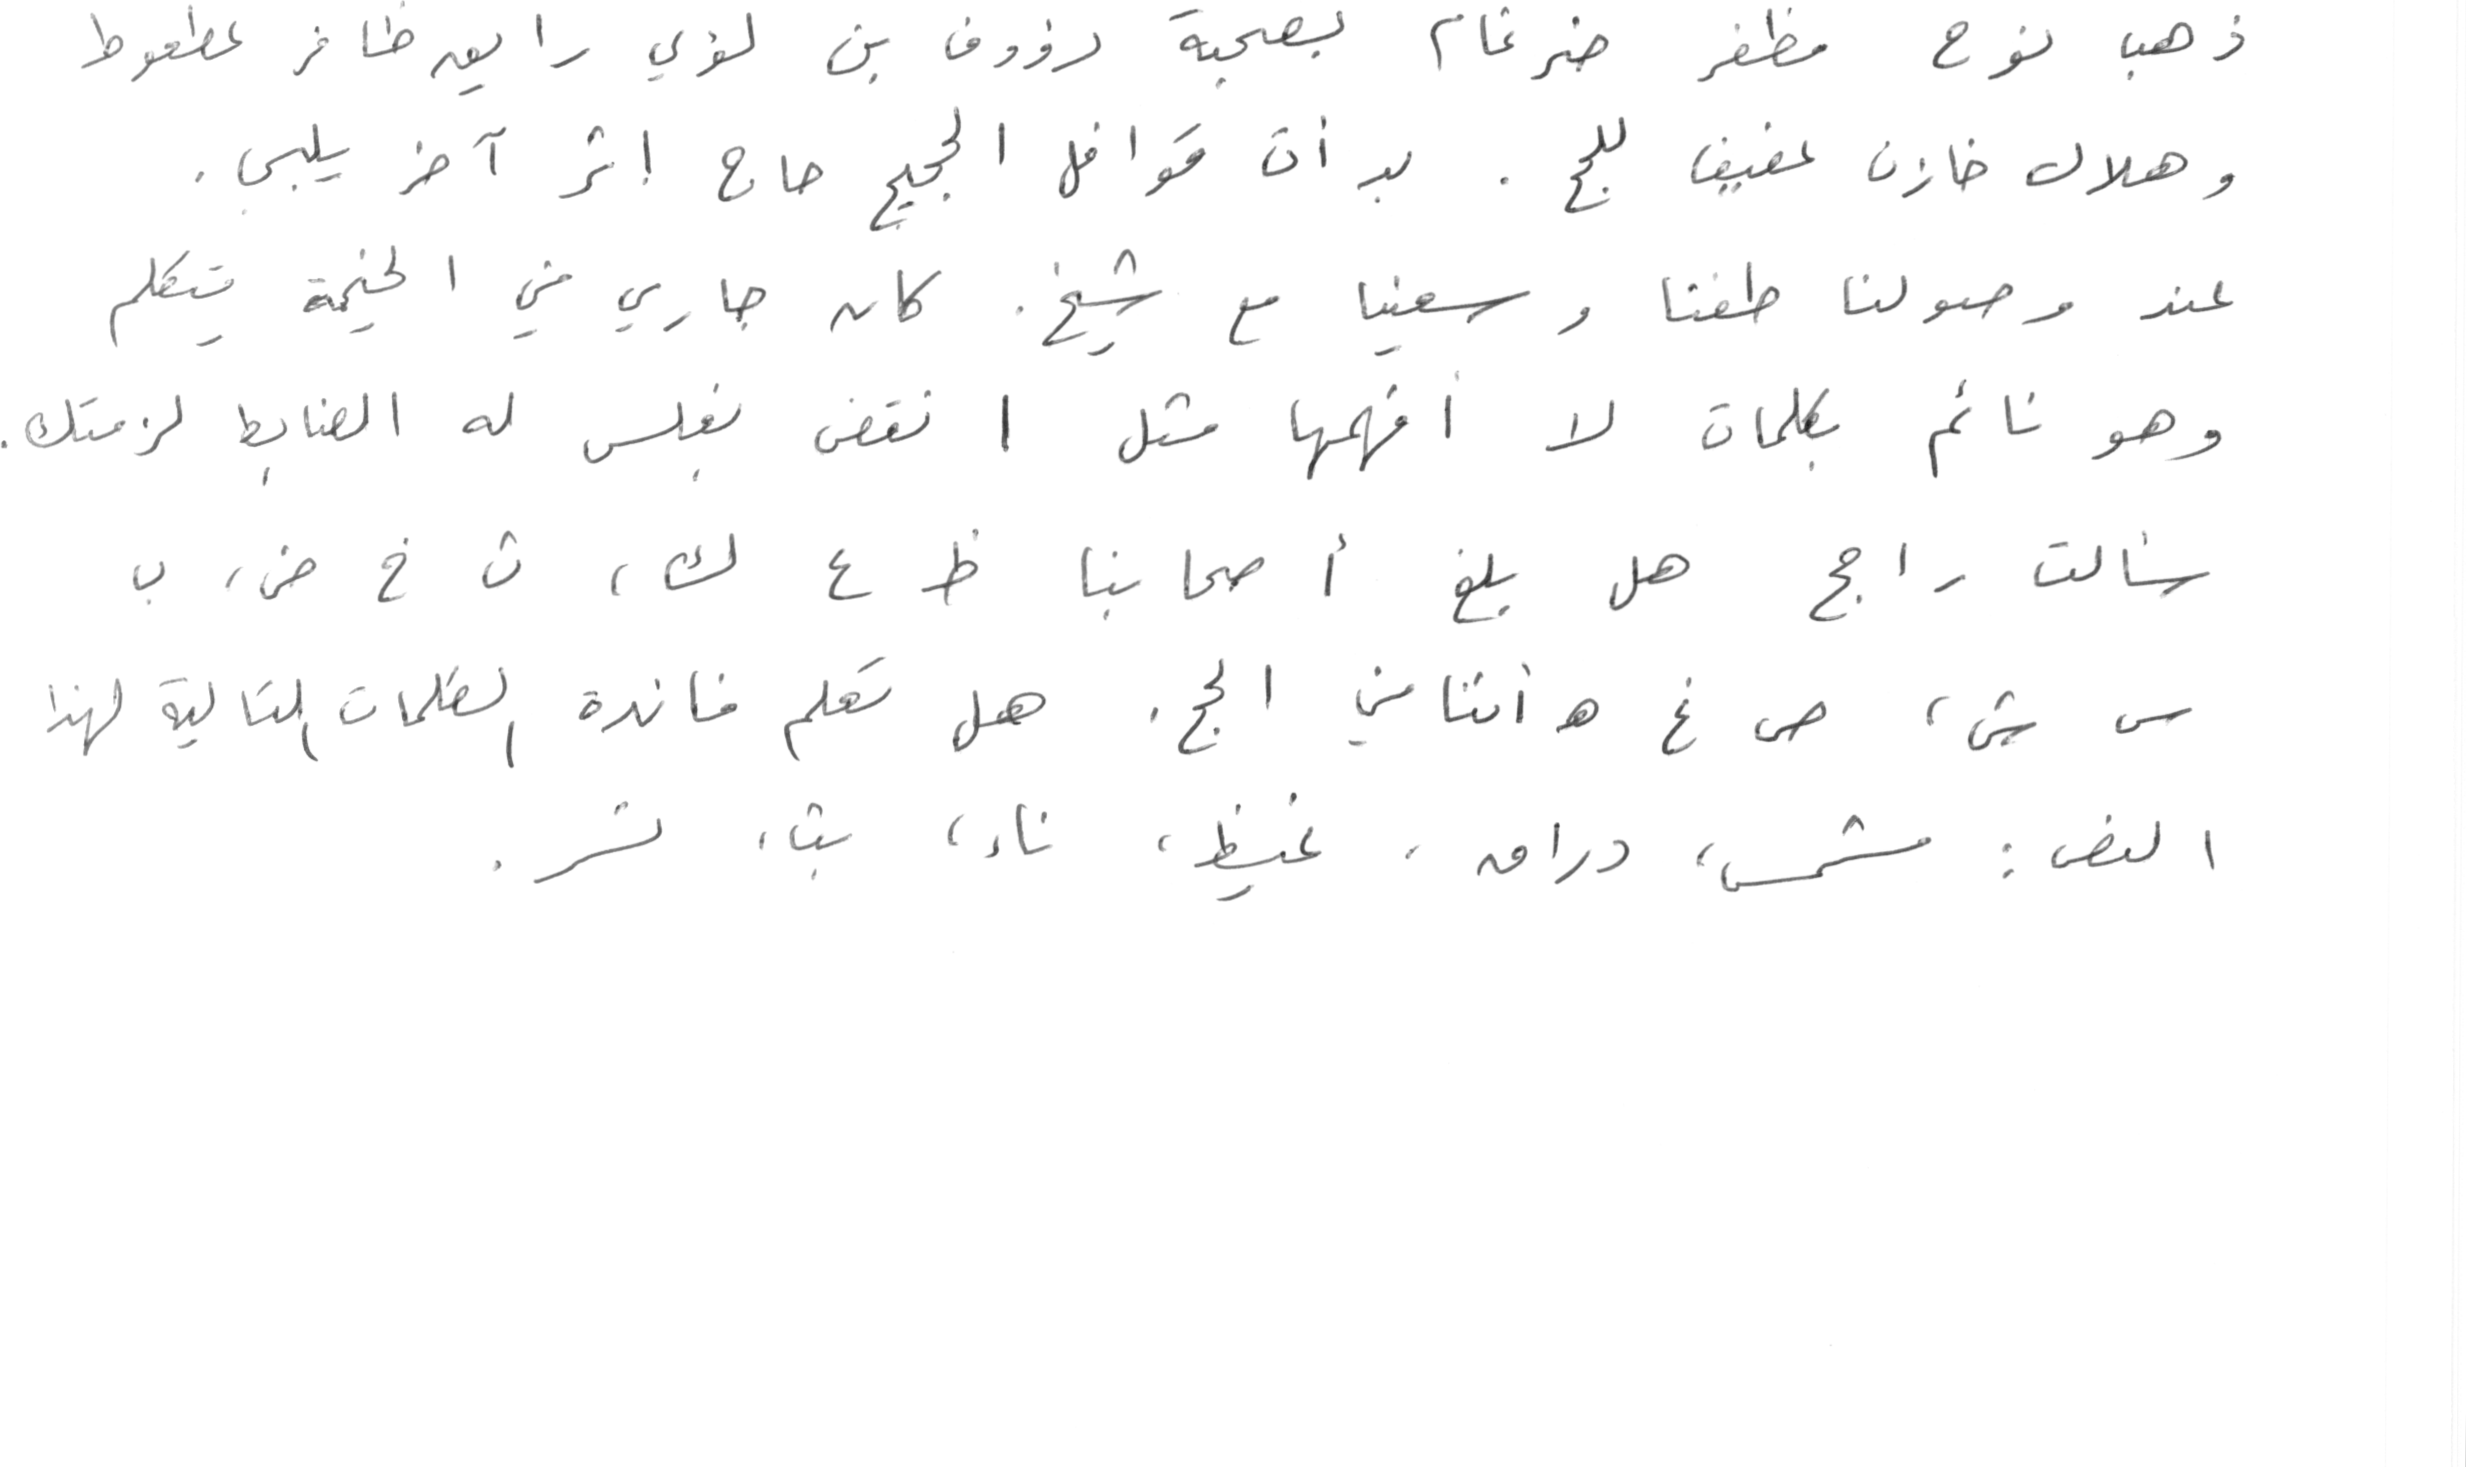 ذهب نوح مظفر ضرغام بصحبة رؤوف بن لؤي رايق ظافر عطعوط
وهلال خازن عفيف للحج. بدأت قوافل الحجيج حاج إثر آخر يلبي.
عند وصولنا طفنا وسعينا مع شيخ. كان جاري في الخيمة يتكلم
وهو نائم بكلمات لا أفهمها مثل انقض بغلس له الضابط لزمتك.
سألت راجح هل بلغ أصحابنا ظ ع ك، ث خ ض، ب
س ش، ص غ ه أننا في الحج. هل تعلم فائدة الكلمات التالية لهذا
النص: مشمس، دراق، غيظ، ناء، بث، نسر.